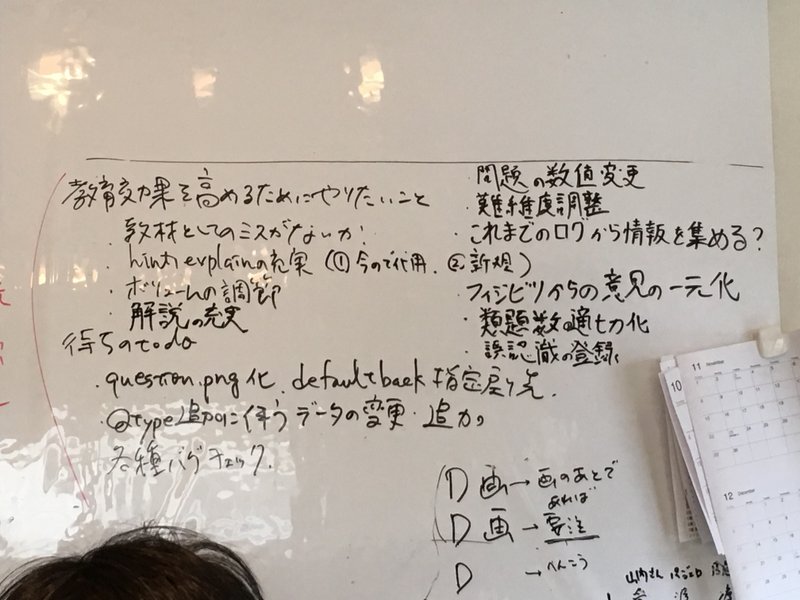 教育効果を高めるためにやりたいこと
・教材としてのミスがないか
・hint, explainの充実 (① 今ので代用. ② 新規)
・ボリュームの調節
・解説の充実
・問題の数値変更
・難維度調整
・これまでのログから情報を集める?
・フィジビリからの意見の一元化
・類題数の適切化
・誤認識の登録
待ちのtodo
・question.png化. defaultback 指定戻り先.
・@type追加に伴うデータの変更・追加
・各種バグチェック.
D 画→画のあとで
あれば
D 画→要注
D →へんこう
山内さん パジェロ
11 November
10
12 December